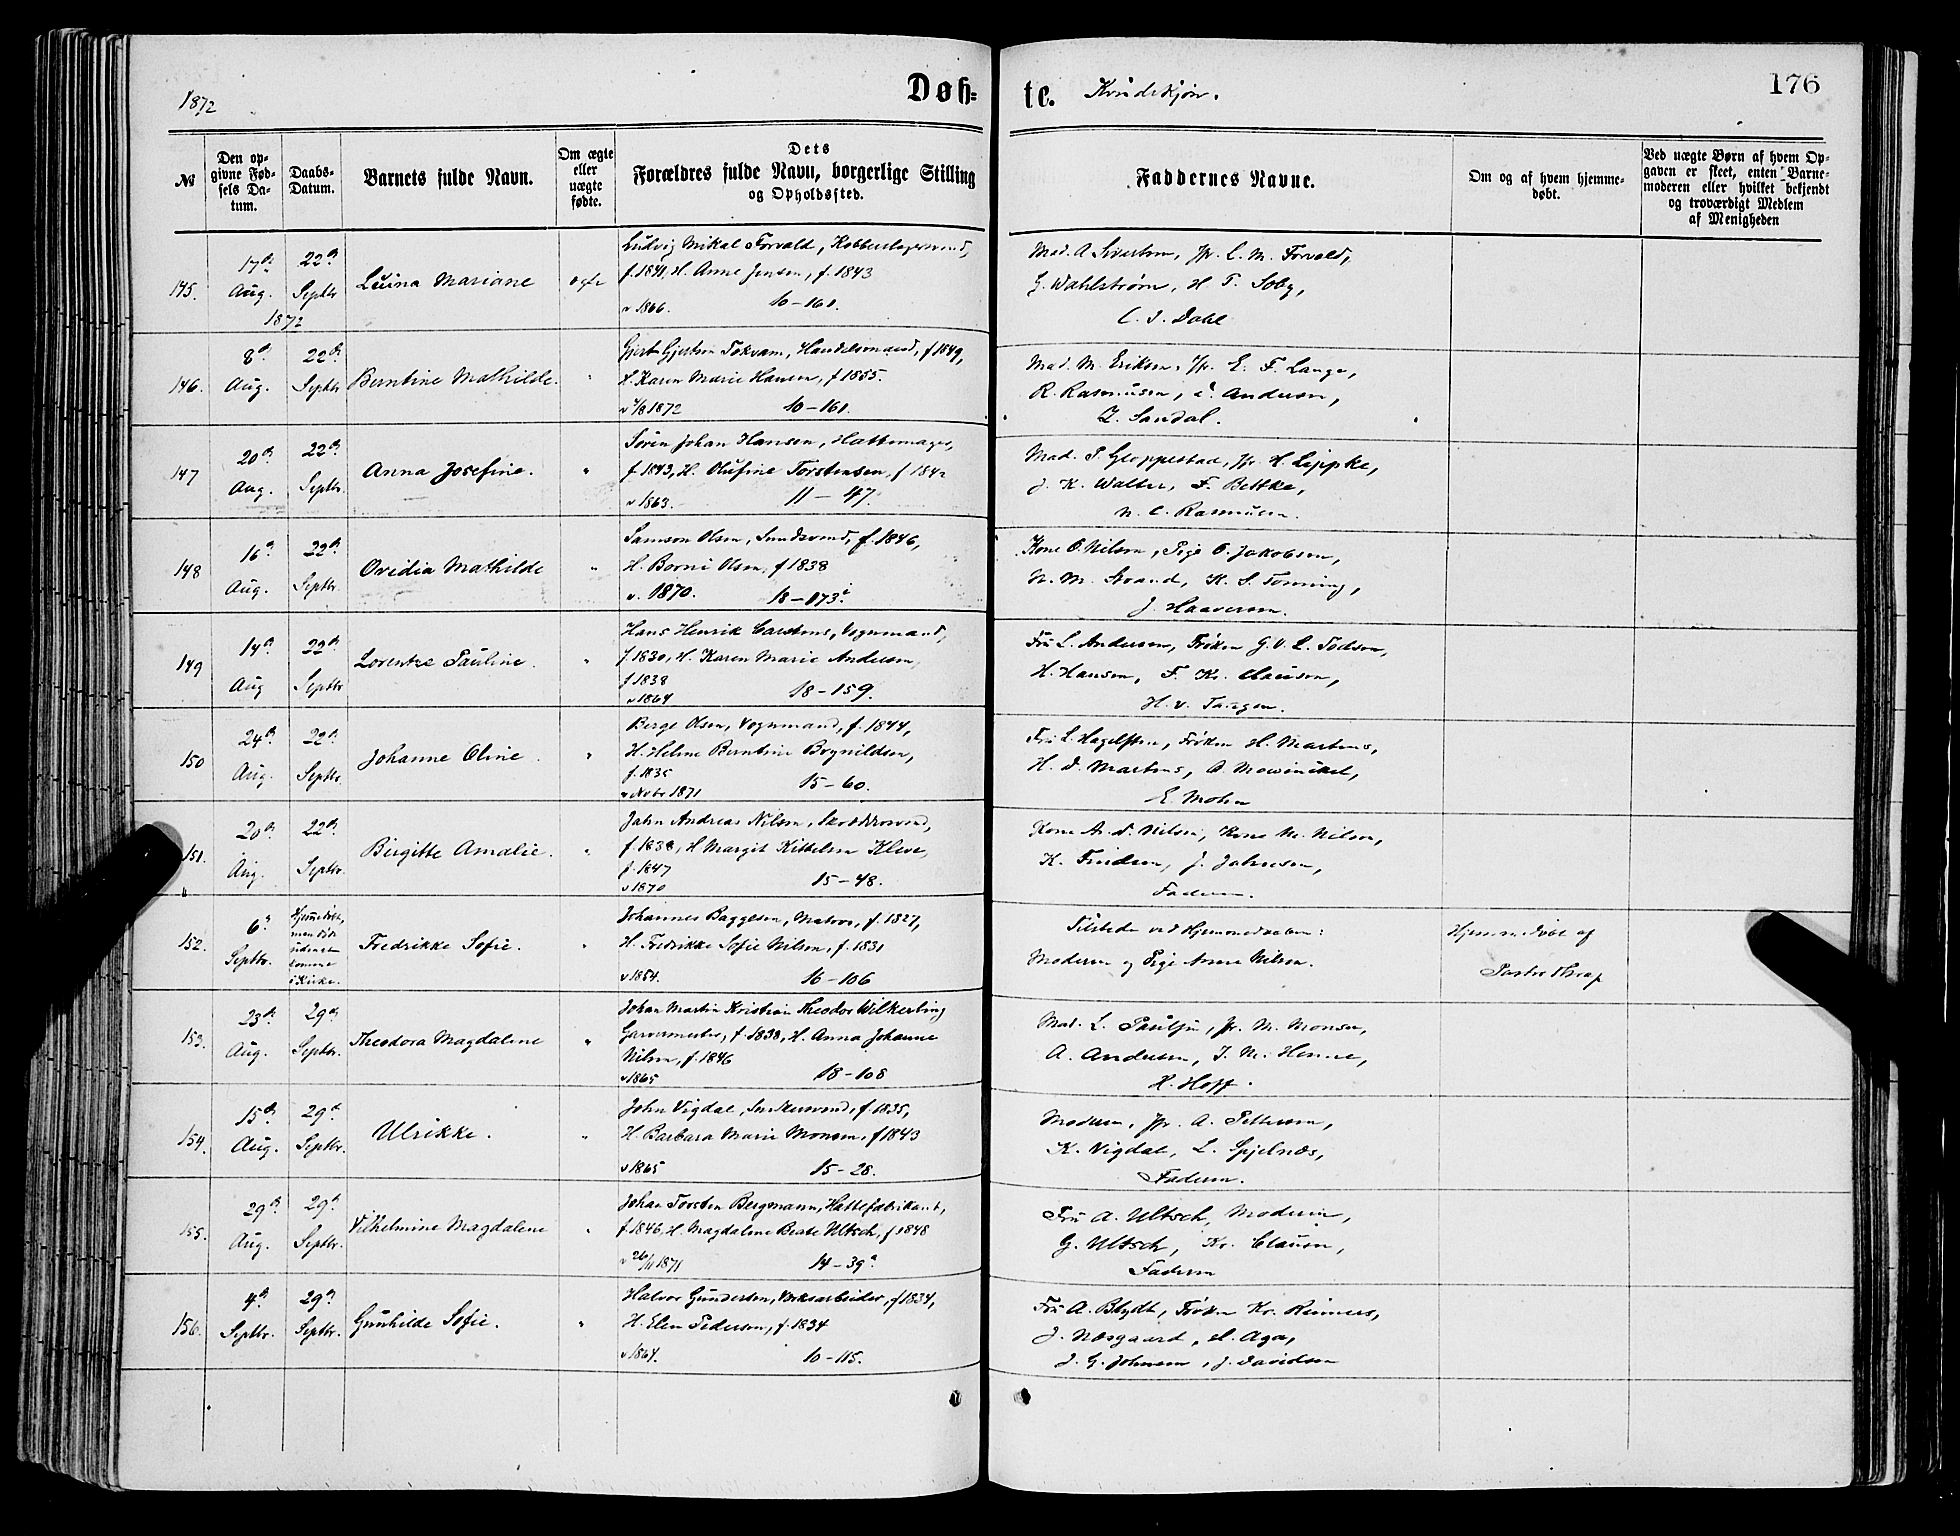 1872
Døb-
te.
Kvindekjøn.
176
№
Den op-
givne Fød-
sels Da-
tum.
Daabs-
Datum.
Barnets fulde Navn.
Om ægte
eller
uægte
fødte.
Dets
Forældres fulde Navn, borgerlige Stilling
og Opholdssted.
Faddernes Navne.
Om og af hvem hjemme-
døbt.
Ved uægte Børn af hvem Op-
gaven er skeet, enten Barne-
moderen eller hvilket bekjendt
og troværdigt Medlem
af Menigheden
145.
17de
Aug.
1872
22de
Septbr
Luina Mariane
ægte
Ludvig Mikal Forvald, Kobberslagersvend,
f. 1841, H. Anne Jensen, f. 1843
v 1866. 10-161.
Mad. A Sivertsen, Jfr. C. M. Forvald,
G. Wahlstrøm, H T. Soby,
C. J. Dahl
146.
8de
Aug.
22de
Septbr
Berntine Mathilde.
"
Gjert Gjertsen Tokvam, Handelsmand, f 1849,
H. Karen Marie Hansen, f 1855.
v 4/8 1872 10-161.
Mad. M. Eriksen, Jfr. E. F. Lange,
R. Rasmussen, Andersen,
Z. Sandal.
147
20de
Aug.
22de
Septbr.
Anna Josefine.
"
Søren Johan Hansen, Hattemager,
f. 1843, H. Olufine Torstensen, f 1842
v 1863. 11-47.
Mad. S. Gloppestad, Jfr. H. Lippke,
J. K. Walter, F. Bettke,
N. C. Rasmussen.
148
16de
Aug.
22de
Septbr.
Ovidia Mathilde
"
Samson Olsen, Sundsvend, f. 1846,
H. Borni Olsen, f 1838
v. 1870. 18-173.
Kone O. Nilsen, Pige O. Jakobsen,
N. M. Strand, K. S. Torning,
J. Haaversen.
149
14de
Aug
22de
Septbr
Lorentze Pauline.
"
Hans Henrik Carstens, Vognmand,
f. 1830, H. Karen Marie Andersen,
f 1838
v 1864 18-159.
Fru L. Andersen, Frøken G. V. L. Todsen,
H. Hansen, F. Kr. Clausen,
H. v. Tangen.
150
24de
Aug.
22de
Septbr.
Johanne Oline.
"
Berge Olsen, Vognmand, f. 1844,
H. Helene Berntine Brynildsen,
f. 1835
v Novbr 1871 15-60.
Fru L. Hagelsten, Frøken H. Martens,
H. D. Martens, A. Mowinckel,
E. Mohn
151.
20de
Aug.
22de
Septbr.
Birgitte Amalie.
"
John Andreas Nilsen, Skræddersvend,
f. 1838, H Margit Kittelsen Kleve,
f. 1847
v 1870 15-48.
Kone A. D. Nilsen, Kone M. Nilsen,
K. Knudsen, J. Johnsen,
Faderen.
152.
6te
Septbr.
Hjemmedøbt,
men døde
uden at
komme
i Kirke.
Fredrikke Sofie.
"
Johannes Baggesen, Matros, f. 1827,
H. Fredrikke Sofie Nilsen, f. 1831
v 1854. 16-106
Tilstede ved Hjemmedaaben:
Moderen og Pige Anna Nilsen.
Hjemmedøbt af
Pastor Krag
153.
23de
Aug.
29de
Septbr.
Theodora Magdalene
"
Johan Martin Kristian Theodor Wilkerling
Garvermester, f. 1838, H. Anna Johanne
Nilsen, f. 1846
v 1865 18-108
Mad. L. Paulsen, Jfr. M. Monsen,
A. Andersen, J. M. Henne,
H. Hoff.
154.
15de
Aug.
29de
Septbr.
Ulrikke.
"
John Vigdal, Snedkersvend, f. 1835,
H. Barbara Marie Monsen, f 1843
v 1865 15-28.
Moderen, Jfr. A. Pettersen,
K. Vigdal, L. Spjelnæs,
Faderen.
155.
29de
Aug.
29de
Septbr.
Vilhelmine Magdalene
"
Johan Torsten Bergmann, Hattefabrikant,
f. 1846, H. Magdalene Beate Ultsch, f 1848
v 26/11 1871 14-39a
Fru A. Ultsch, Moderen,
G. Ultsch, Kr. Clausen,
Faderen
156.
4de
Septbr.
29de
Septbr.
Gunhilde Sofie.
"
Halvor Gundersen, Verksarbeider, f 1834,
H. Elen Pedersen, f. 1834
v 1864. 10-115.
Fru A. Blydt, Frøken Kr. Reimers,
J. Næsgaard, M. Aga,
J. G. Johnsen, J. Davidsen